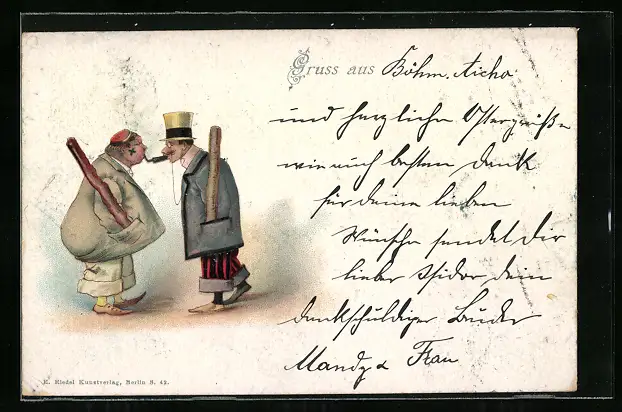 Gruss aus Böhm. Aicha
und herzliche Ostergrüße
wie auch besten Dank
für deine lieben
Wünsche sendet Dir
lieber Isidor dein
dankschuldiger Bruder
Mandy & Frau
E. Riedel Kunstverlag, Berlin S. 42.